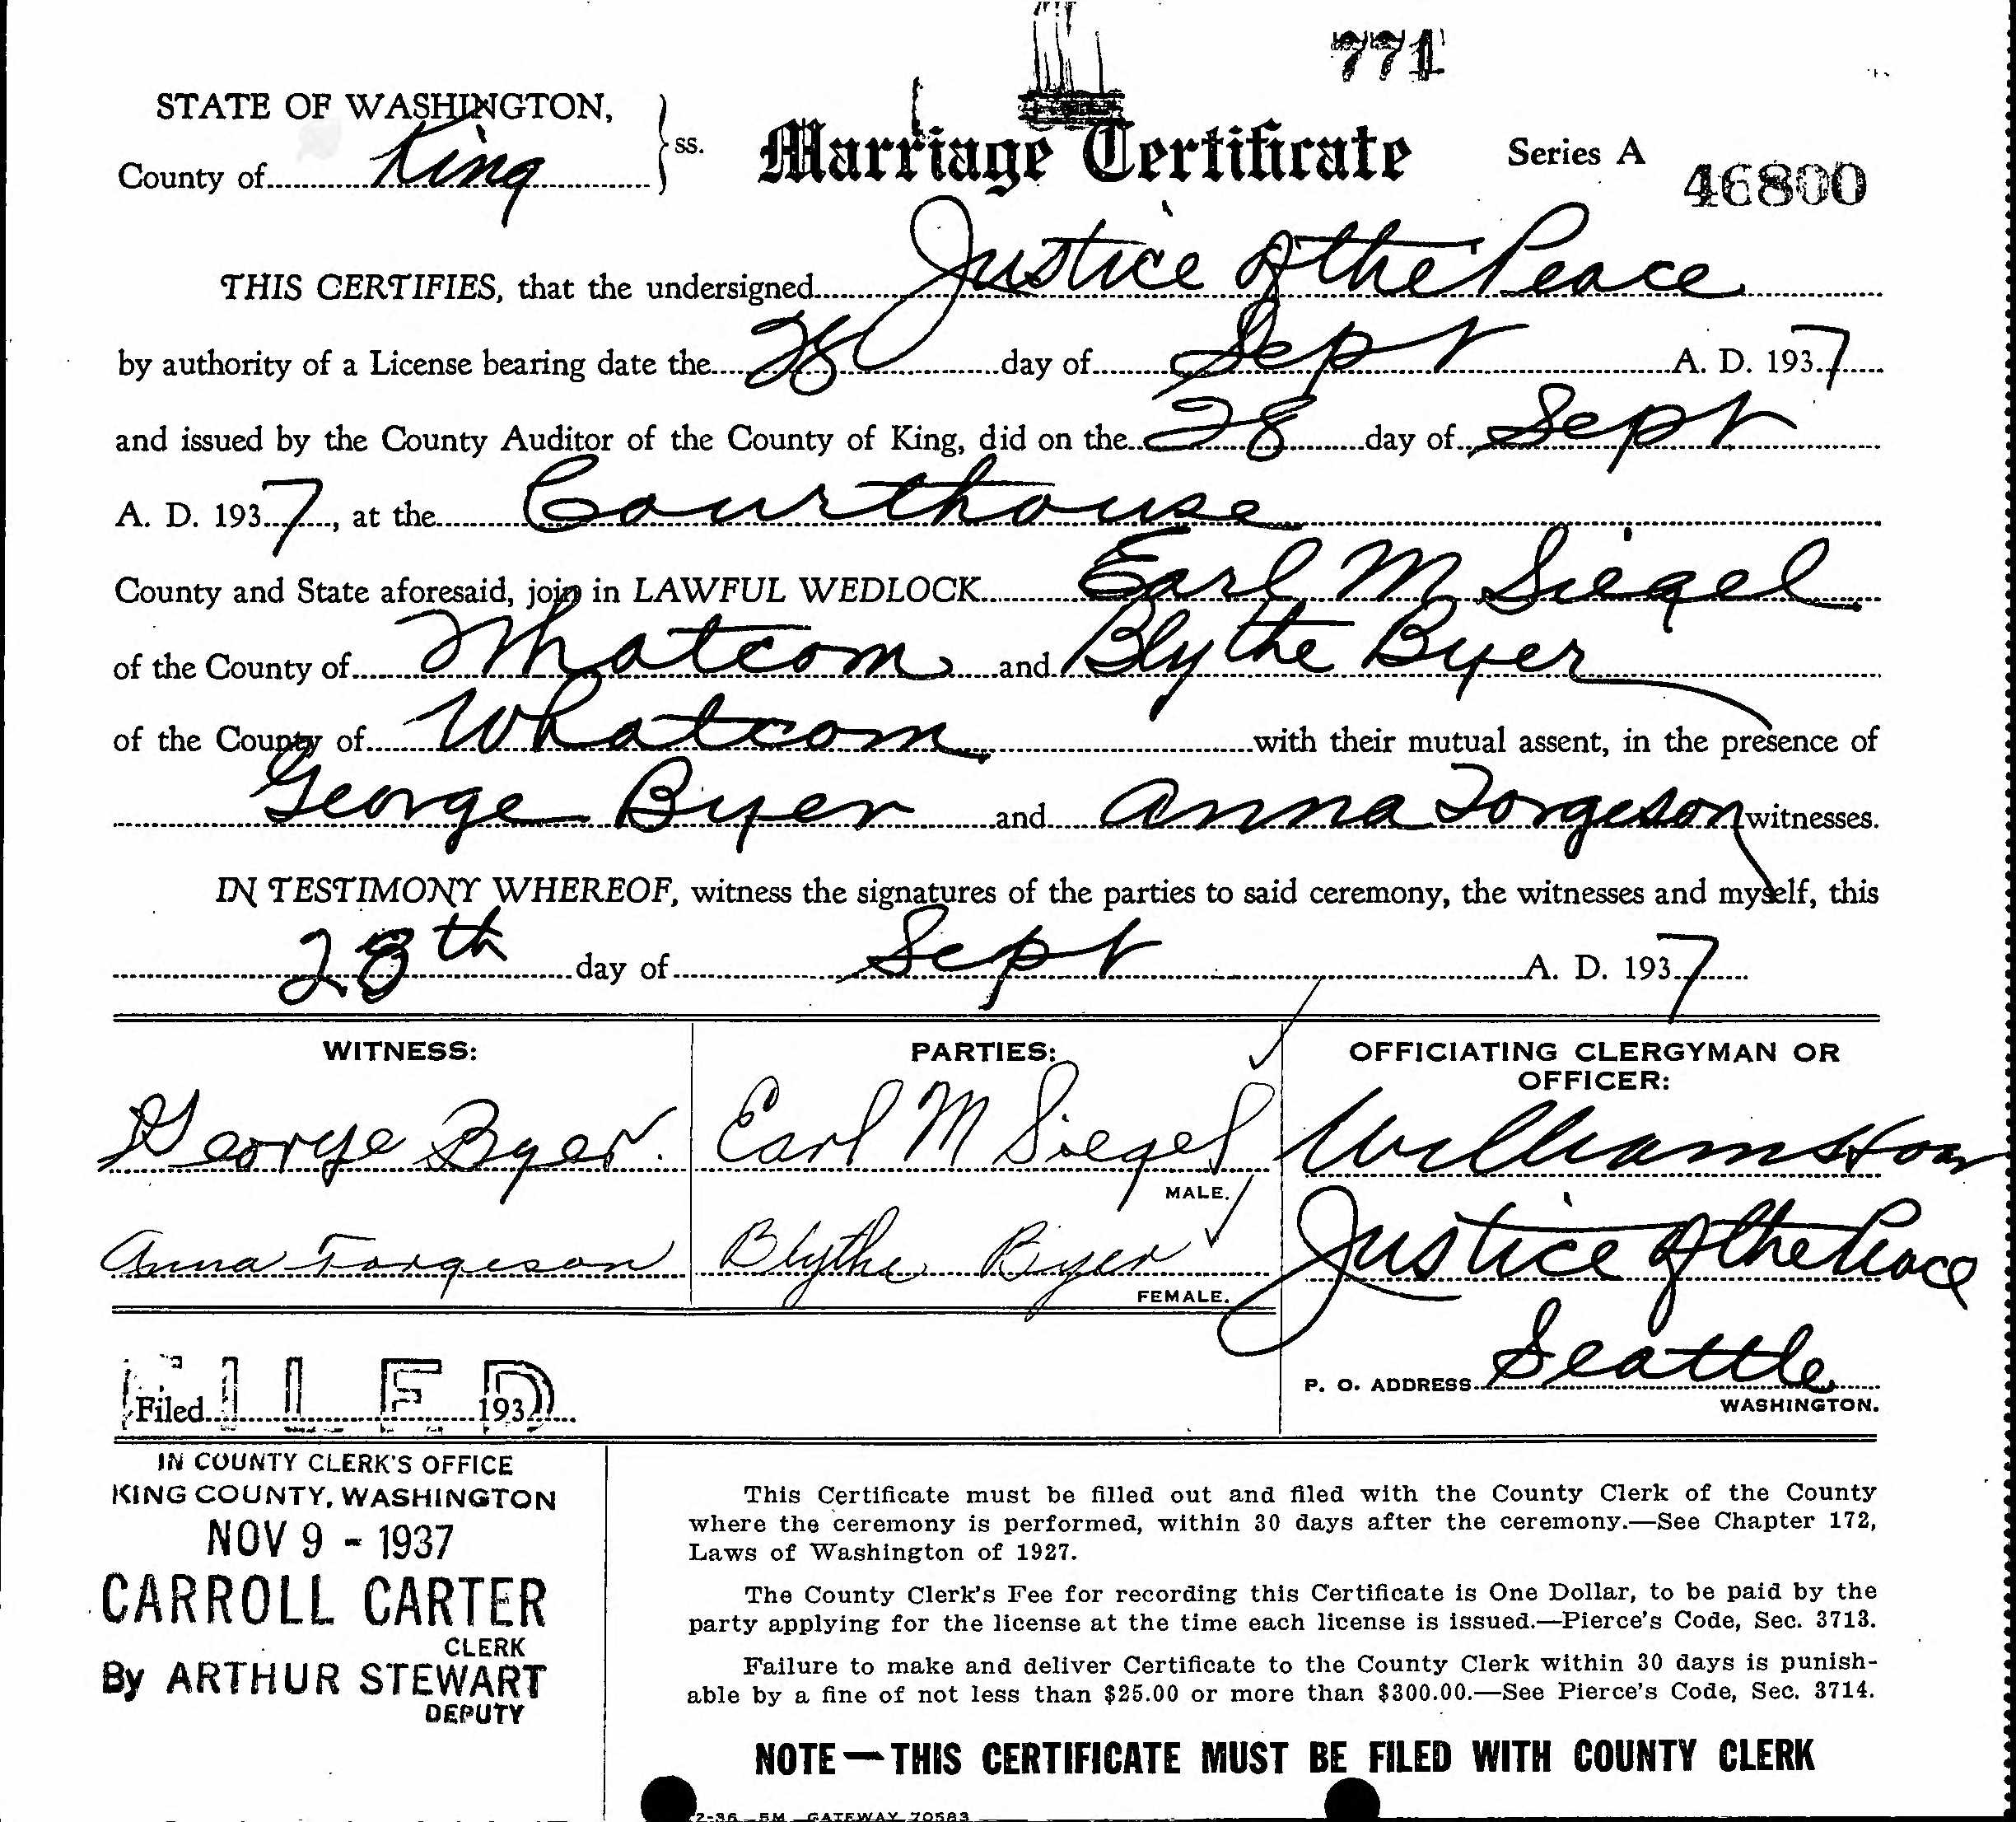 771
STATE OF WASHINGTON,
County of King ss.
Marriage Certificate
Series A 46800
THIS CERTIFIES, that the undersigned Justice of the Peace
by authority of a License bearing date the 28 day of Sept A. D. 1937
and issued by the County Auditor of the County of King, did on the 28 day of Sept
A. D. 1937, at the Courthouse
County and State aforesaid, join in LAWFUL WEDLOCK Earl M Siegel
of the County of Whatcom and Blythe Byer
of the County of Whatcom with their mutual assent, in the presence of
George Byer and Anna Torgeson witnesses.
IN TESTIMONY WHEREOF, witness the signatures of the parties to said ceremony, the witnesses and myself, this
28th day of Sept A. D. 1937
WITNESS:
George Byer.
Anna Torgeson
PARTIES:
Earl M Siegel
MALE.
Blythe Byer
FEMALE.
OFFICIATING CLERGYMAN OR
OFFICER:
Williamston
Justice of the Peace
P. O. ADDRESS Seattle
WASHINGTON.
FILED
Filed 193
IN COUNTY CLERK'S OFFICE
KING COUNTY, WASHINGTON
NOV 9 - 1937
CARROLL CARTER
CLERK
By ARTHUR STEWART
DEPUTY
This Certificate must be filled out and filed with the County Clerk of the County
where the ceremony is performed, within 30 days after the ceremony.—See Chapter 172,
Laws of Washington of 1927.
The County Clerk's Fee for recording this Certificate is One Dollar, to be paid by the
party applying for the license at the time each license is issued.—Pierce's Code, Sec. 3713.
Failure to make and deliver Certificate to the County Clerk within 30 days is punish-
able by a fine of not less than $25.00 or more than $300.00.—See Pierce's Code, Sec. 3714.
NOTE — THIS CERTIFICATE MUST BE FILED WITH COUNTY CLERK
2-36 5M GATEWAY 70583